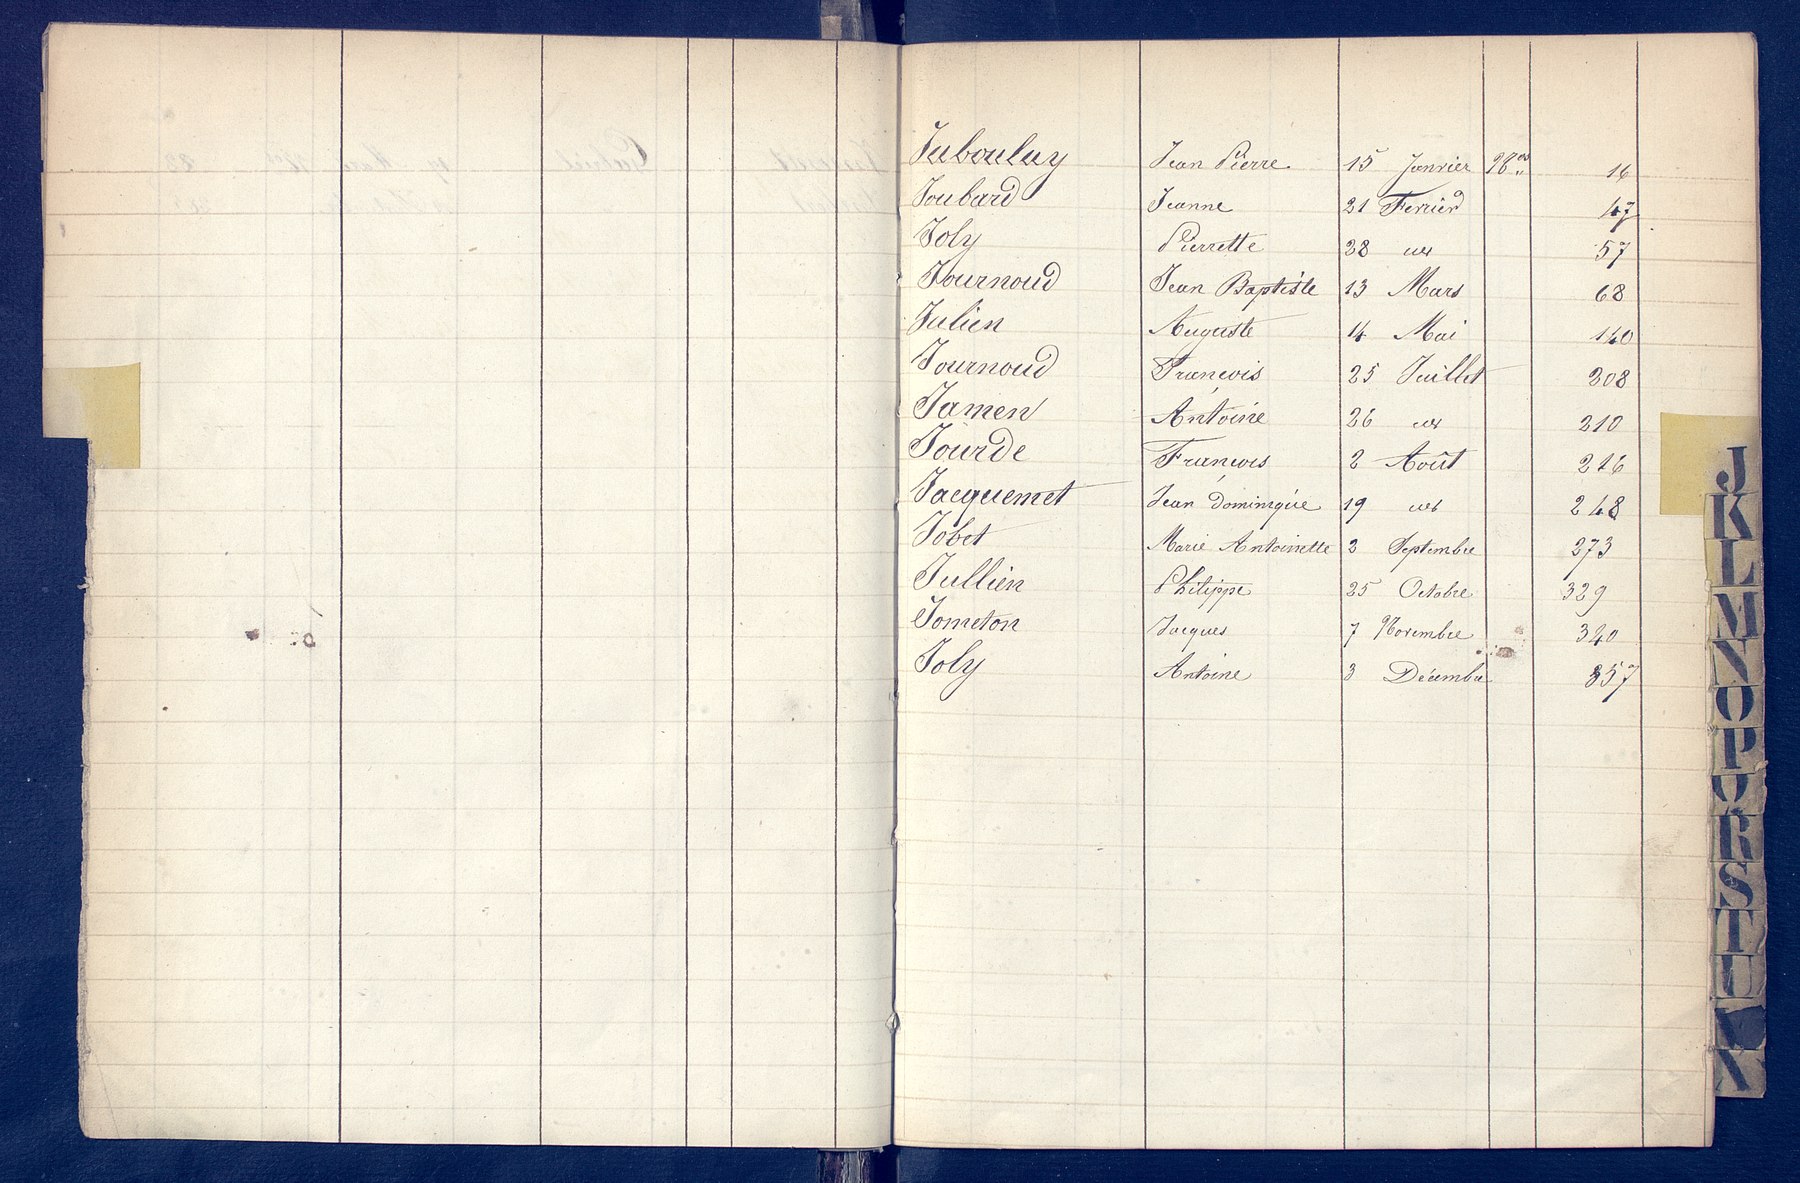 Jaboulay Jean Pierre 15 Janvier 16
Joubard Jeanne 21 Fevrier 47
Joly Pierrette 28 57
Journoud Jean Baptiste 13 Mars 68
Julien Auguste 14 Mai 140
Journoud François 25 Juillet 208
Jamen Antoine 26 210
Jourde François 2 Août 216
Jacquemet Jean Dominique 19 248
Jobet Marie Antoinette 2 Septembre 273
Jullien Philippe 25 Octobre 329
Jometon Jacques 7 Novembre 340
Joly Antoine 3 Décembre 357
J
K
L
M
N
O
P
Q
R
S
T
U